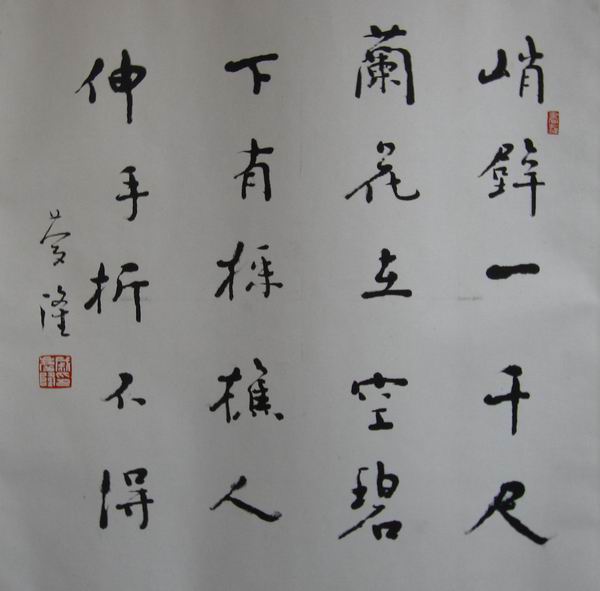 峭壁一千尺
蘭花在空碧
下有採樵人
伸手折不得
夢隆